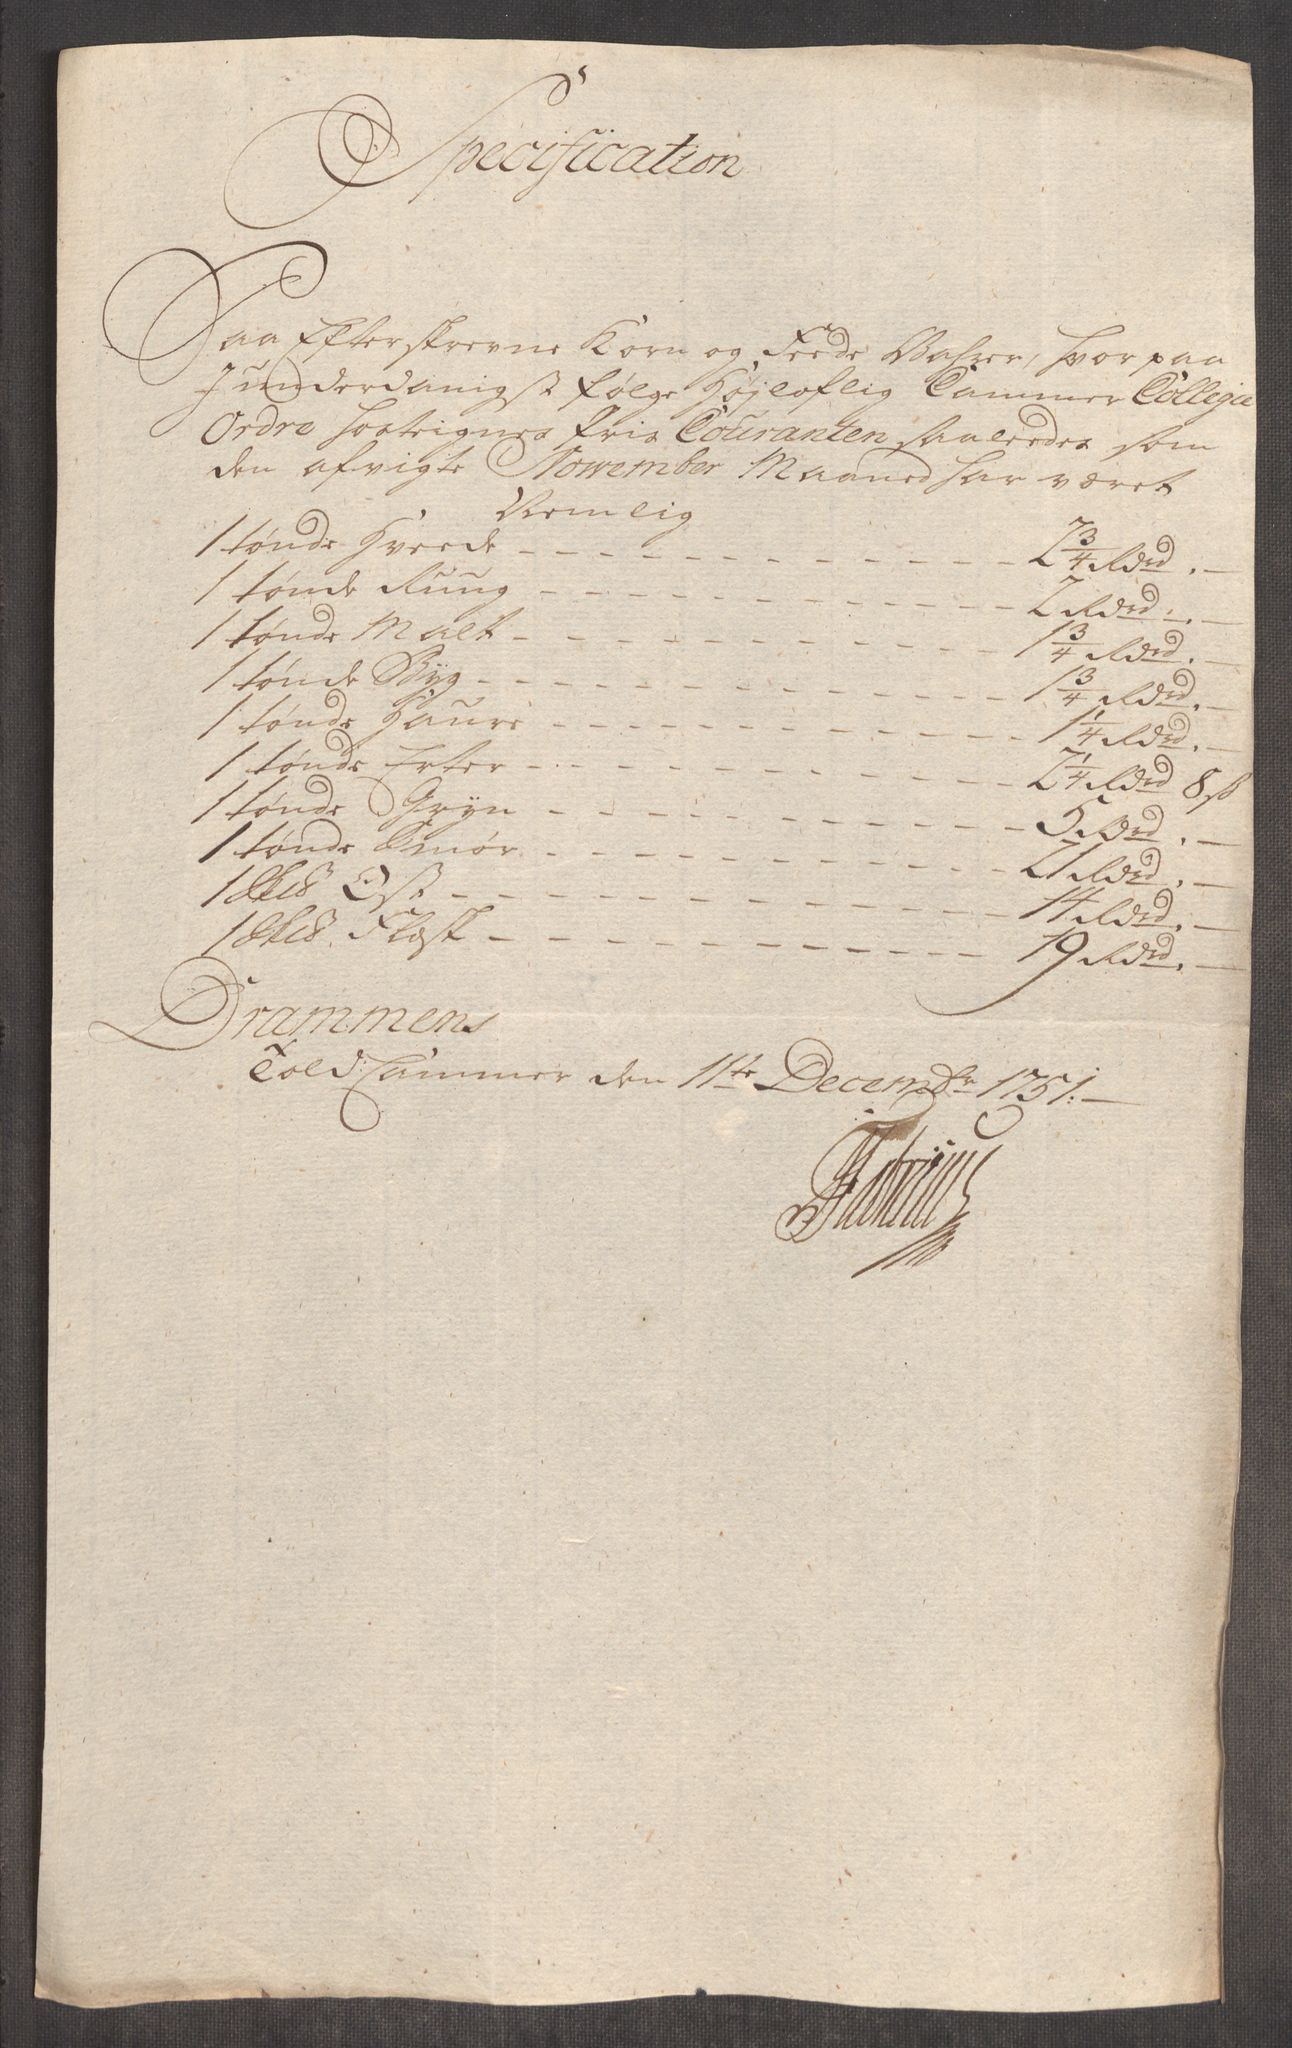 Specification
Paa Efterskrevne Korn og Feede Vahrer, hvor paa
J underdanigst følge Højloflig Cammer Collegie
Ordre hosteignes Pris Couranten saaleedes som
den afvigte November Maaned har været
Nemlig
1 tønde Hveede - - - 2 3/4 Rdrd. -
1 tønde Ruug - - - 2 Rdrd. -
1 tønde Malt - - - 1 3/4 Rdrd. -
1 tønde Byg - - - 1 3/4 Rdrd. -
1 tønde Haure - - - 1 1/4 Rdrd. -
1 tønde Erter - - - 2 1/4 Rdrd 8 ß
1 tønde Gryn - - - 5 Rdrd. -
1 tønde Smør - - - 21 Rdrd. -
1 Sk℔ Ost - - - 14 Rdrd. -
1 Sk℔. Flæsk - - - 19 Rdrd. -
Drammens
Told Cammer den 11te Decembr 1751. -